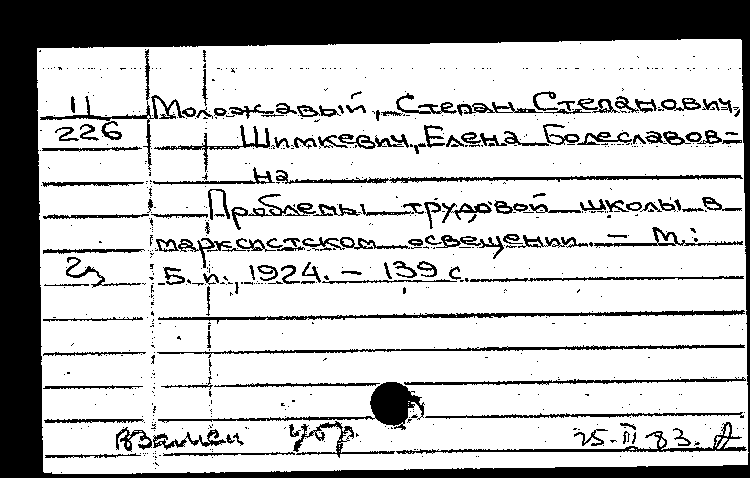 11 Моложавый, Степан Степанович,
226 Шимкевич, Елена Болеславов-
на
Проблемы трудовой школы в
марксистском освещении. – М.:
Б. и., 1924. – 139 с
взамен убр. 25.III 83.